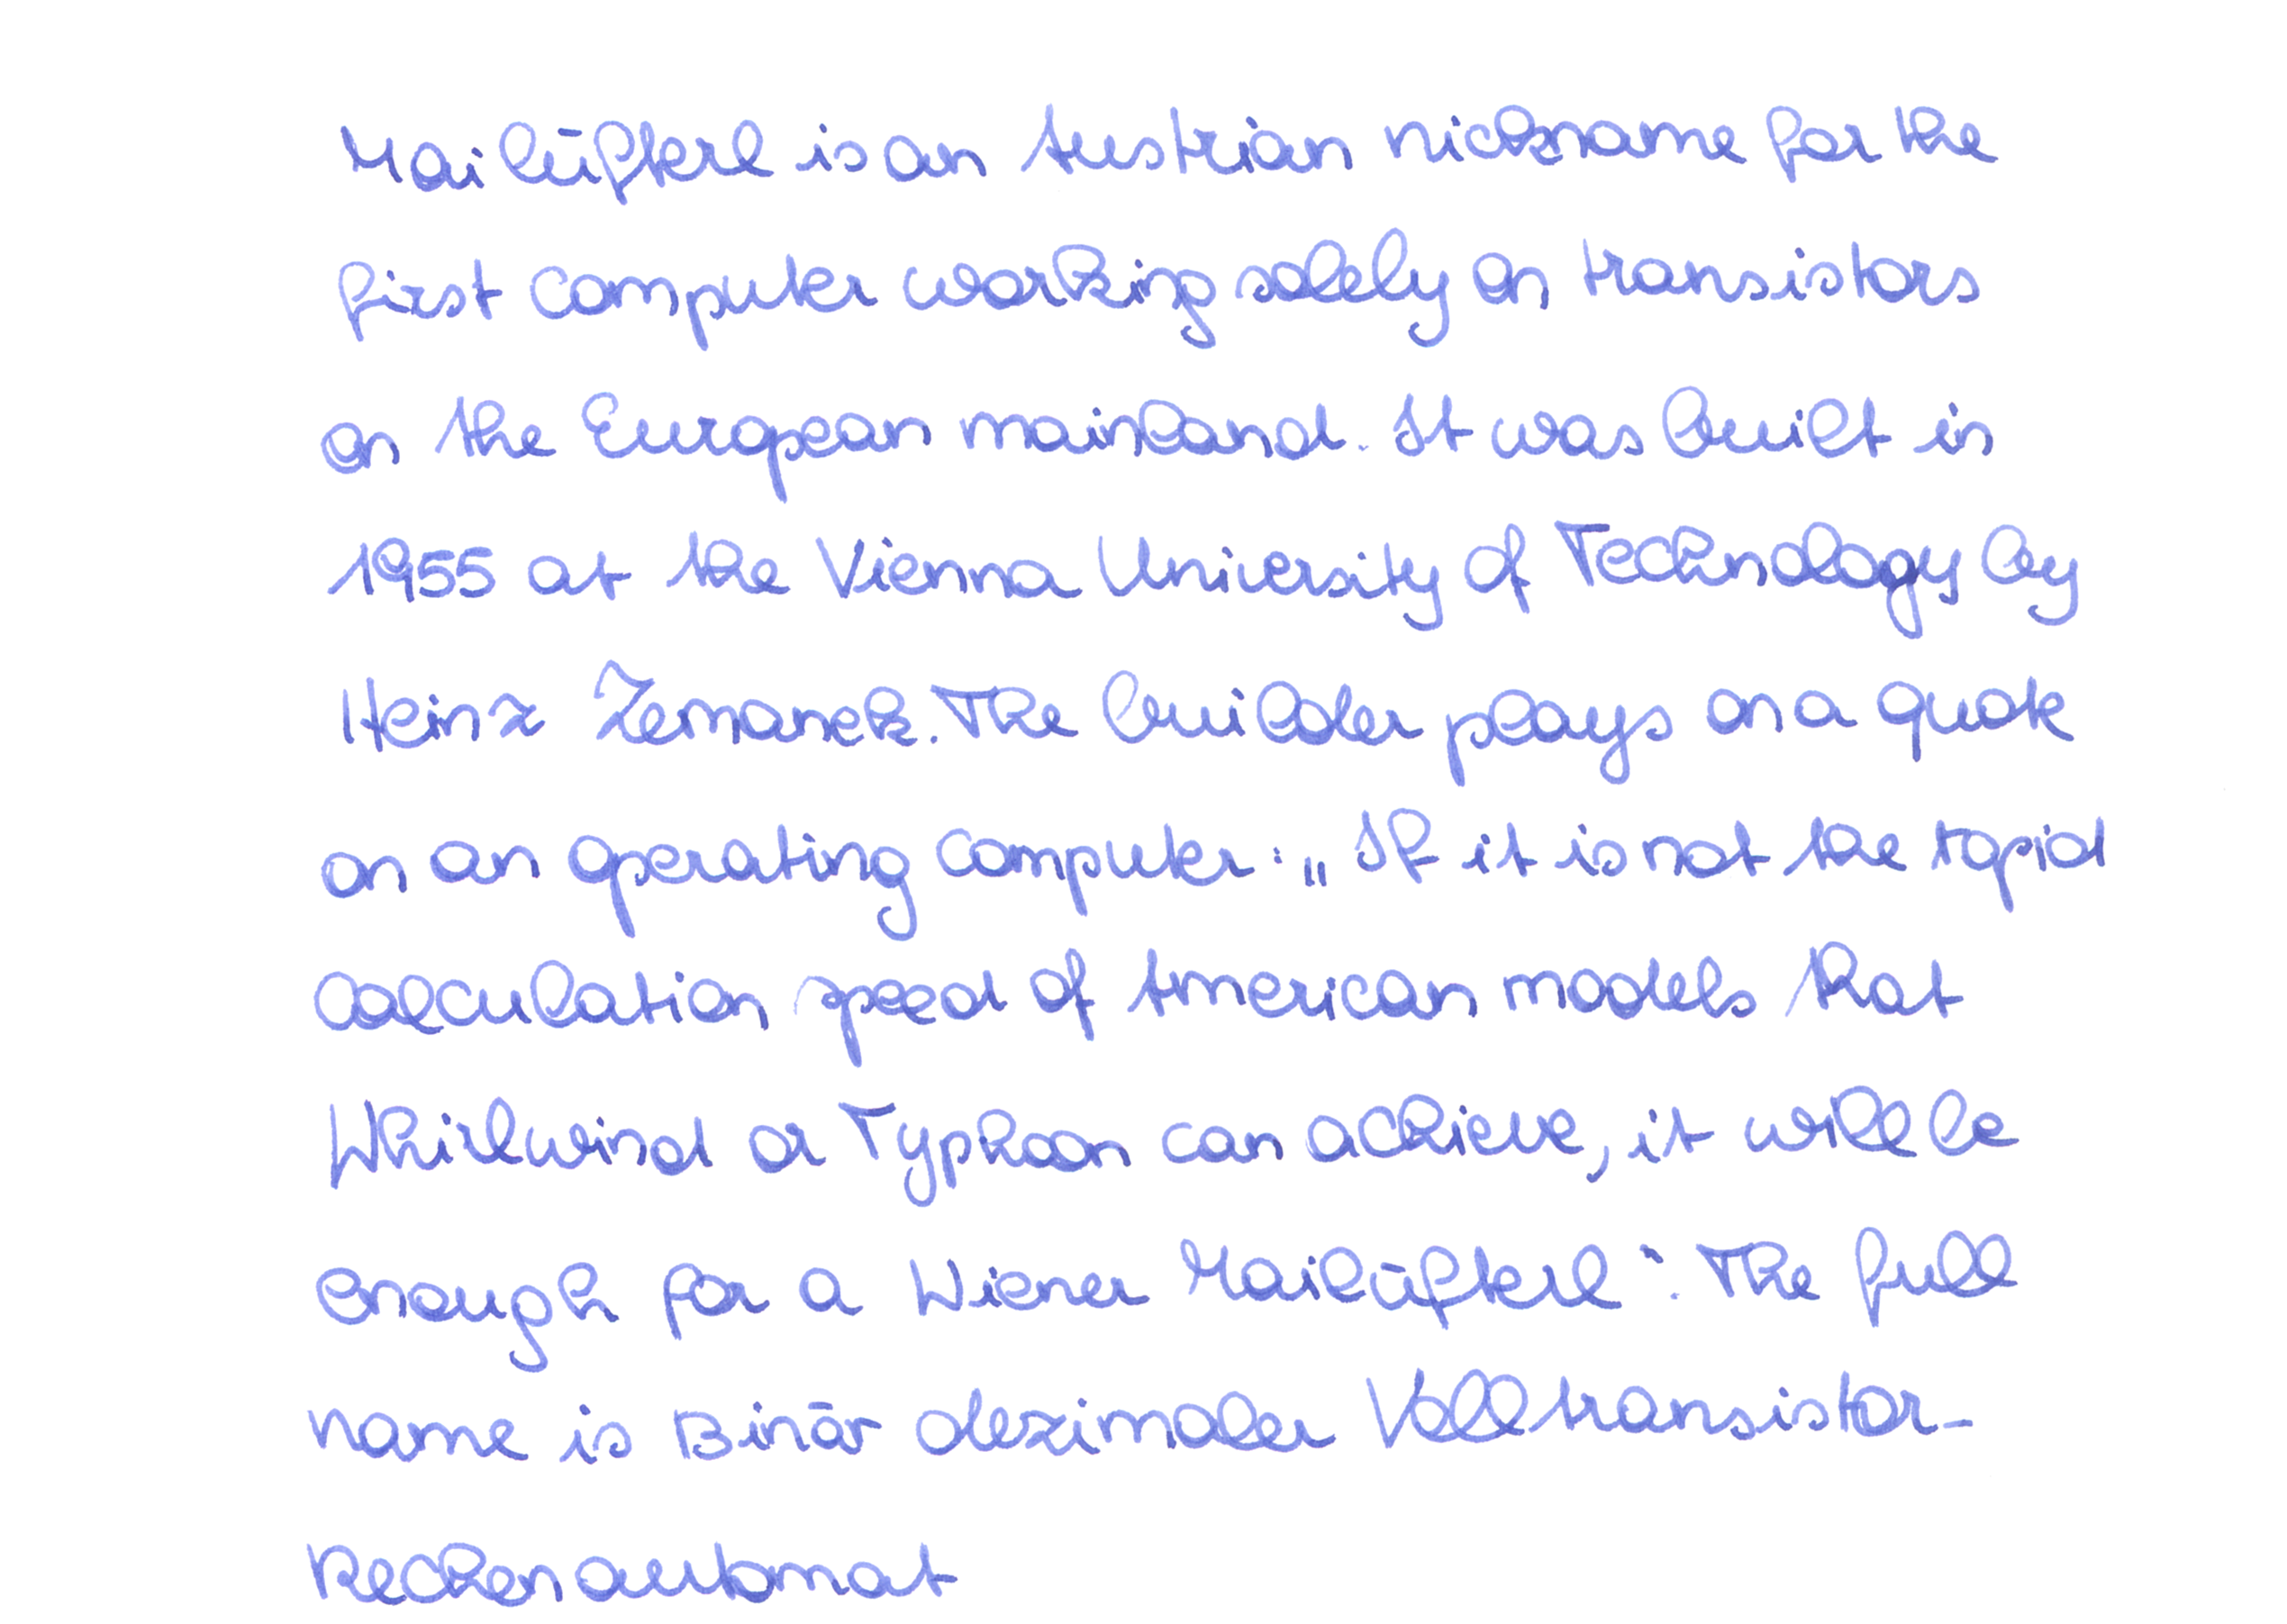 Mailüfterl is an Austrian nickname for the
first computer working solely on transistors
on the European mainland. It was built in
1955 at the Vienna University of Technology by
Heinz Zemanek. The builder plays on a quote
on an operating computer: „If it is not the rapid
calculation speed of American models that
Whirlwind or Typhoon can achieve, it will be
enough for a Wiener Mailüfterl“. The full
name is Binär dezimaler Volltransistor-
Rechenautomat